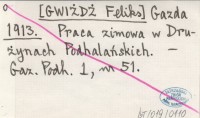 [GWIŻDŻ Feliks] Gazda
1913. Praca zimowa w Dru-
żynach Podhalańskich. –
Gaz. Podh. 1, nr 51.